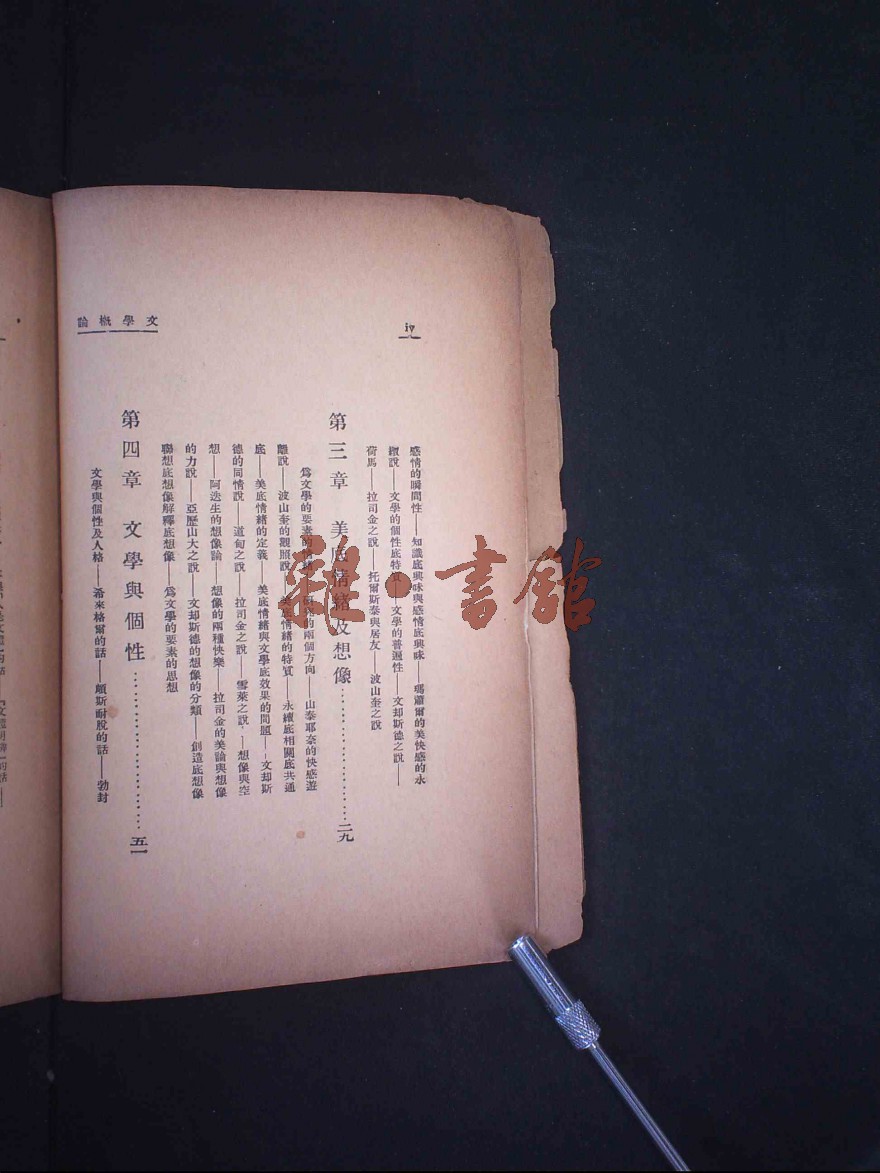 文學概論
iv
感情的瞬間性——知識底興味與感情底興味——馬蕭爾的美快感的永
續說——文學的個性底特質——文學的普遍性——文却斯德之說——
荷馬——拉司金之說——托爾斯泰與居友——波山奎之說
第三章 美底情緒及想像……二九
爲文學的要素的情緒——研究的兩個方向——山泰耶奈的快感遊
離說——波山奎的觀照說——美底情緒的特質——永續底相關底共通
底——美底情緒的定義——美底情緒與文學底效果的問題——文却斯
德的同情說——道甸之說——拉司金之說——雪萊之說——想像與空
想——阿迭生的想像論——想像的兩種快樂——拉司金的美論與想像
的力說——亞歷山大之說——文却斯德的想像的分類——創造底想像
聯想底想像解釋底想像——爲文學的要素的思想
第四章 文學與個性……五一
文學與個性及人格——希來格爾的話——頗斯耐脫的話——勃封
雜·書館